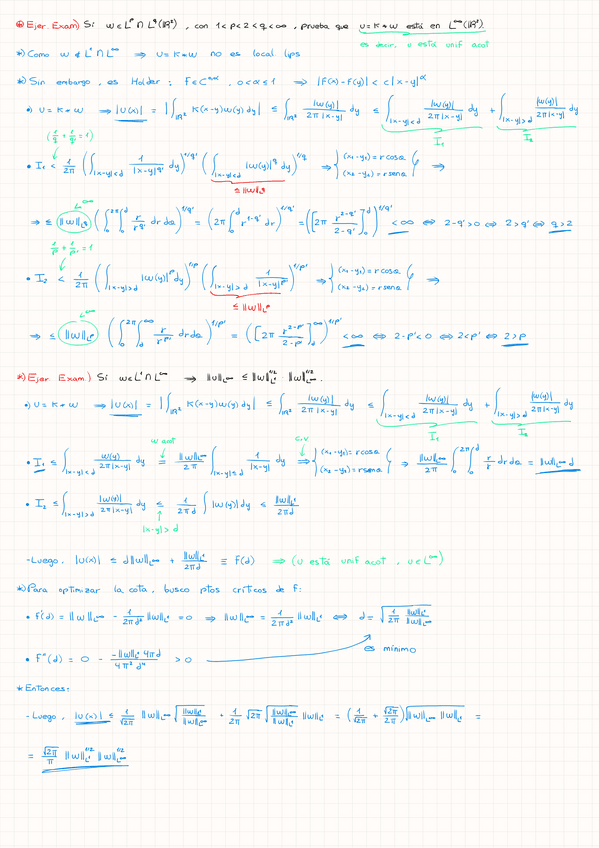 ⊛ Ejer. Exam) Si w∈L^p ∩ L^q(ℝ²), con 1<p<2<q<∞, prueba que u=K*w está en L^∞(ℝ²).
es decir, u está unif acot
*) Como w ∉ L¹∩L^∞ ⇒ u=K*w no es local. lips
*) Sin embargo, es Hölder: f∈C^{0,α}, 0<α≤1 ⇒ |f(x)-f(y)| < c|x-y|^α
•) u = K*w ⇒ |u(x)| = |∫_{ℝ²} K(x-y)w(y)dy| ≤ ∫_{ℝ²} |w(y)|/(2π|x-y|) dy ≤ ∫_{|x-y|<d} |w(y)|/(2π|x-y|) dy + ∫_{|x-y|>d} |w(y)|/(2π|x-y|) dy
I₁ I₂
(1/q + 1/q' = 1)
• I₁ < 1/2π (∫_{|x-y|<d} 1/|x-y|^{q'} dy)^{1/q'} (∫_{|x-y|<d} |w(y)|^q dy)^{1/q} ⇒ { (x₁-y₁)=r cosα (x₂-y₂)=r senα } ⇒
≤ ||w||_{L^q}
L^∞
⇒ ≤ ||w||_{L^q} (∫_0^{2π}∫_0^d r/r^{q'} dr dα)^{1/q'} = (2π∫_0^d r^{1-q'} dr)^{1/q'} = ([2π r^{2-q'}/(2-q')]_0^d)^{1/q'} < ∞ ⇔ 2-q'>0 ⇔ 2>q' ⇔ q>2
1/p + 1/p' = 1
• I₂ < 1/2π (∫_{|x-y|>d} |w(y)|^p dy)^{1/p} (∫_{|x-y|>d} 1/|x-y|^{p'})^{1/p'} ⇒ { (x₁-y₁)=r cosα (x₂-y₂)=r senα } ⇒
≤ ||w||_{L^p}
L^∞
⇒ ≤ ||w||_{L^p} (∫_0^{2π}∫_d^∞ r/r^{p'} dr dα)^{1/p'} = ([2π r^{2-p'}/(2-p')]_d^∞)^{1/p'} < ∞ ⇔ 2-p'<0 ⇔ 2<p' ⇔ 2>p
*) Ejer. Exam.) Si w∈L¹∩L^∞ ⇒ ||u||_{L^∞} ≤ ||w||_{L¹}^{1/2} ||w||_{L^∞}^{1/2}.
•) u = K*w ⇒ |u(x)| = |∫_{ℝ²} K(x-y)w(y)dy| ≤ ∫_{ℝ²} |w(y)|/(2π|x-y|) dy ≤ ∫_{|x-y|<d} |w(y)|/(2π|x-y|) dy + ∫_{|x-y|>d} |w(y)|/(2π|x-y|) dy
I₁ I₂
w acot c.v
• I₁ ≤ ∫_{|x-y|<d} w(y)/(2π|x-y|) dy = ||w||_{L^∞}/2π ∫_{|x-y|≤d} 1/|x-y| dy ⇒ { (x₁-y₁)=r cosα (x₂-y₂)=r senα } ⇒ ||w||_{L^∞}/2π ∫_0^{2π}∫_0^d r/r dr dα = ||w||_{L^∞} d
• I₂ ≤ ∫_{|x-y|>d} |w(y)|/(2π|x-y|) dy ≤ 1/(2πd) ∫ |w(y)| dy ≤ ||w||_{L¹}/(2πd)
|x-y|>d
-Luego, |u(x)| ≤ d||w||_{L^∞} + ||w||_{L¹}/(2πd) ≡ f(d) ⇒ (u está unif acot, u∈L^∞)
*) Para optimizar la cota, busco ptos críticos de f:
• f'(d) = ||w||_{L^∞} - 1/(2πd²) ||w||_{L¹} = 0 ⇒ ||w||_{L^∞} = 1/(2πd²) ||w||_{L¹} ⇔ d = √(1/2π ||w||_{L¹}/||w||_{L^∞})
• f''(d) = 0 - (-||w||_{L¹} 4πd)/(4π²d⁴) > 0
es mínimo
* Entonces:
-Luego, |u(x)| ≤ 1/√2π ||w||_{L^∞} √(||w||_{L¹}/||w||_{L^∞}) + 1/2π √2π √(||w||_{L^∞}/||w||_{L¹}) ||w||_{L¹} = (1/√2π + √2π/2π) √(||w||_{L^∞} ||w||_{L¹}) =
= √2π/π ||w||_{L¹}^{1/2} ||w||_{L^∞}^{1/2}